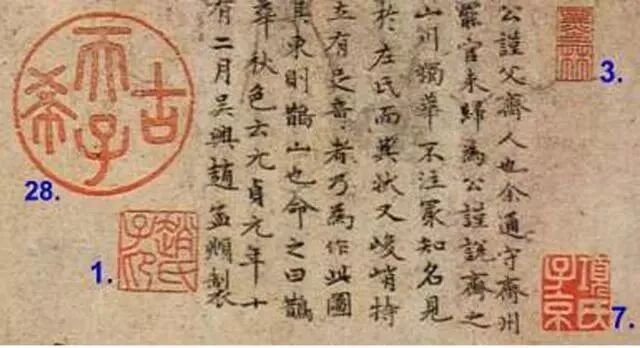 3.
墨林
公謹父齊人也余通守齊州
罷官來歸為公謹說齊之
山川獨華不注最知名見
於左氏而其狀又峻峭特
立有足奇者乃為作此圖
其東則鵲山也命之曰鵲
華秋色云元貞元年十
有二月吳興趙孟頫製
項氏
子京
7.
趙氏
子昂
1.
古希天子
28.